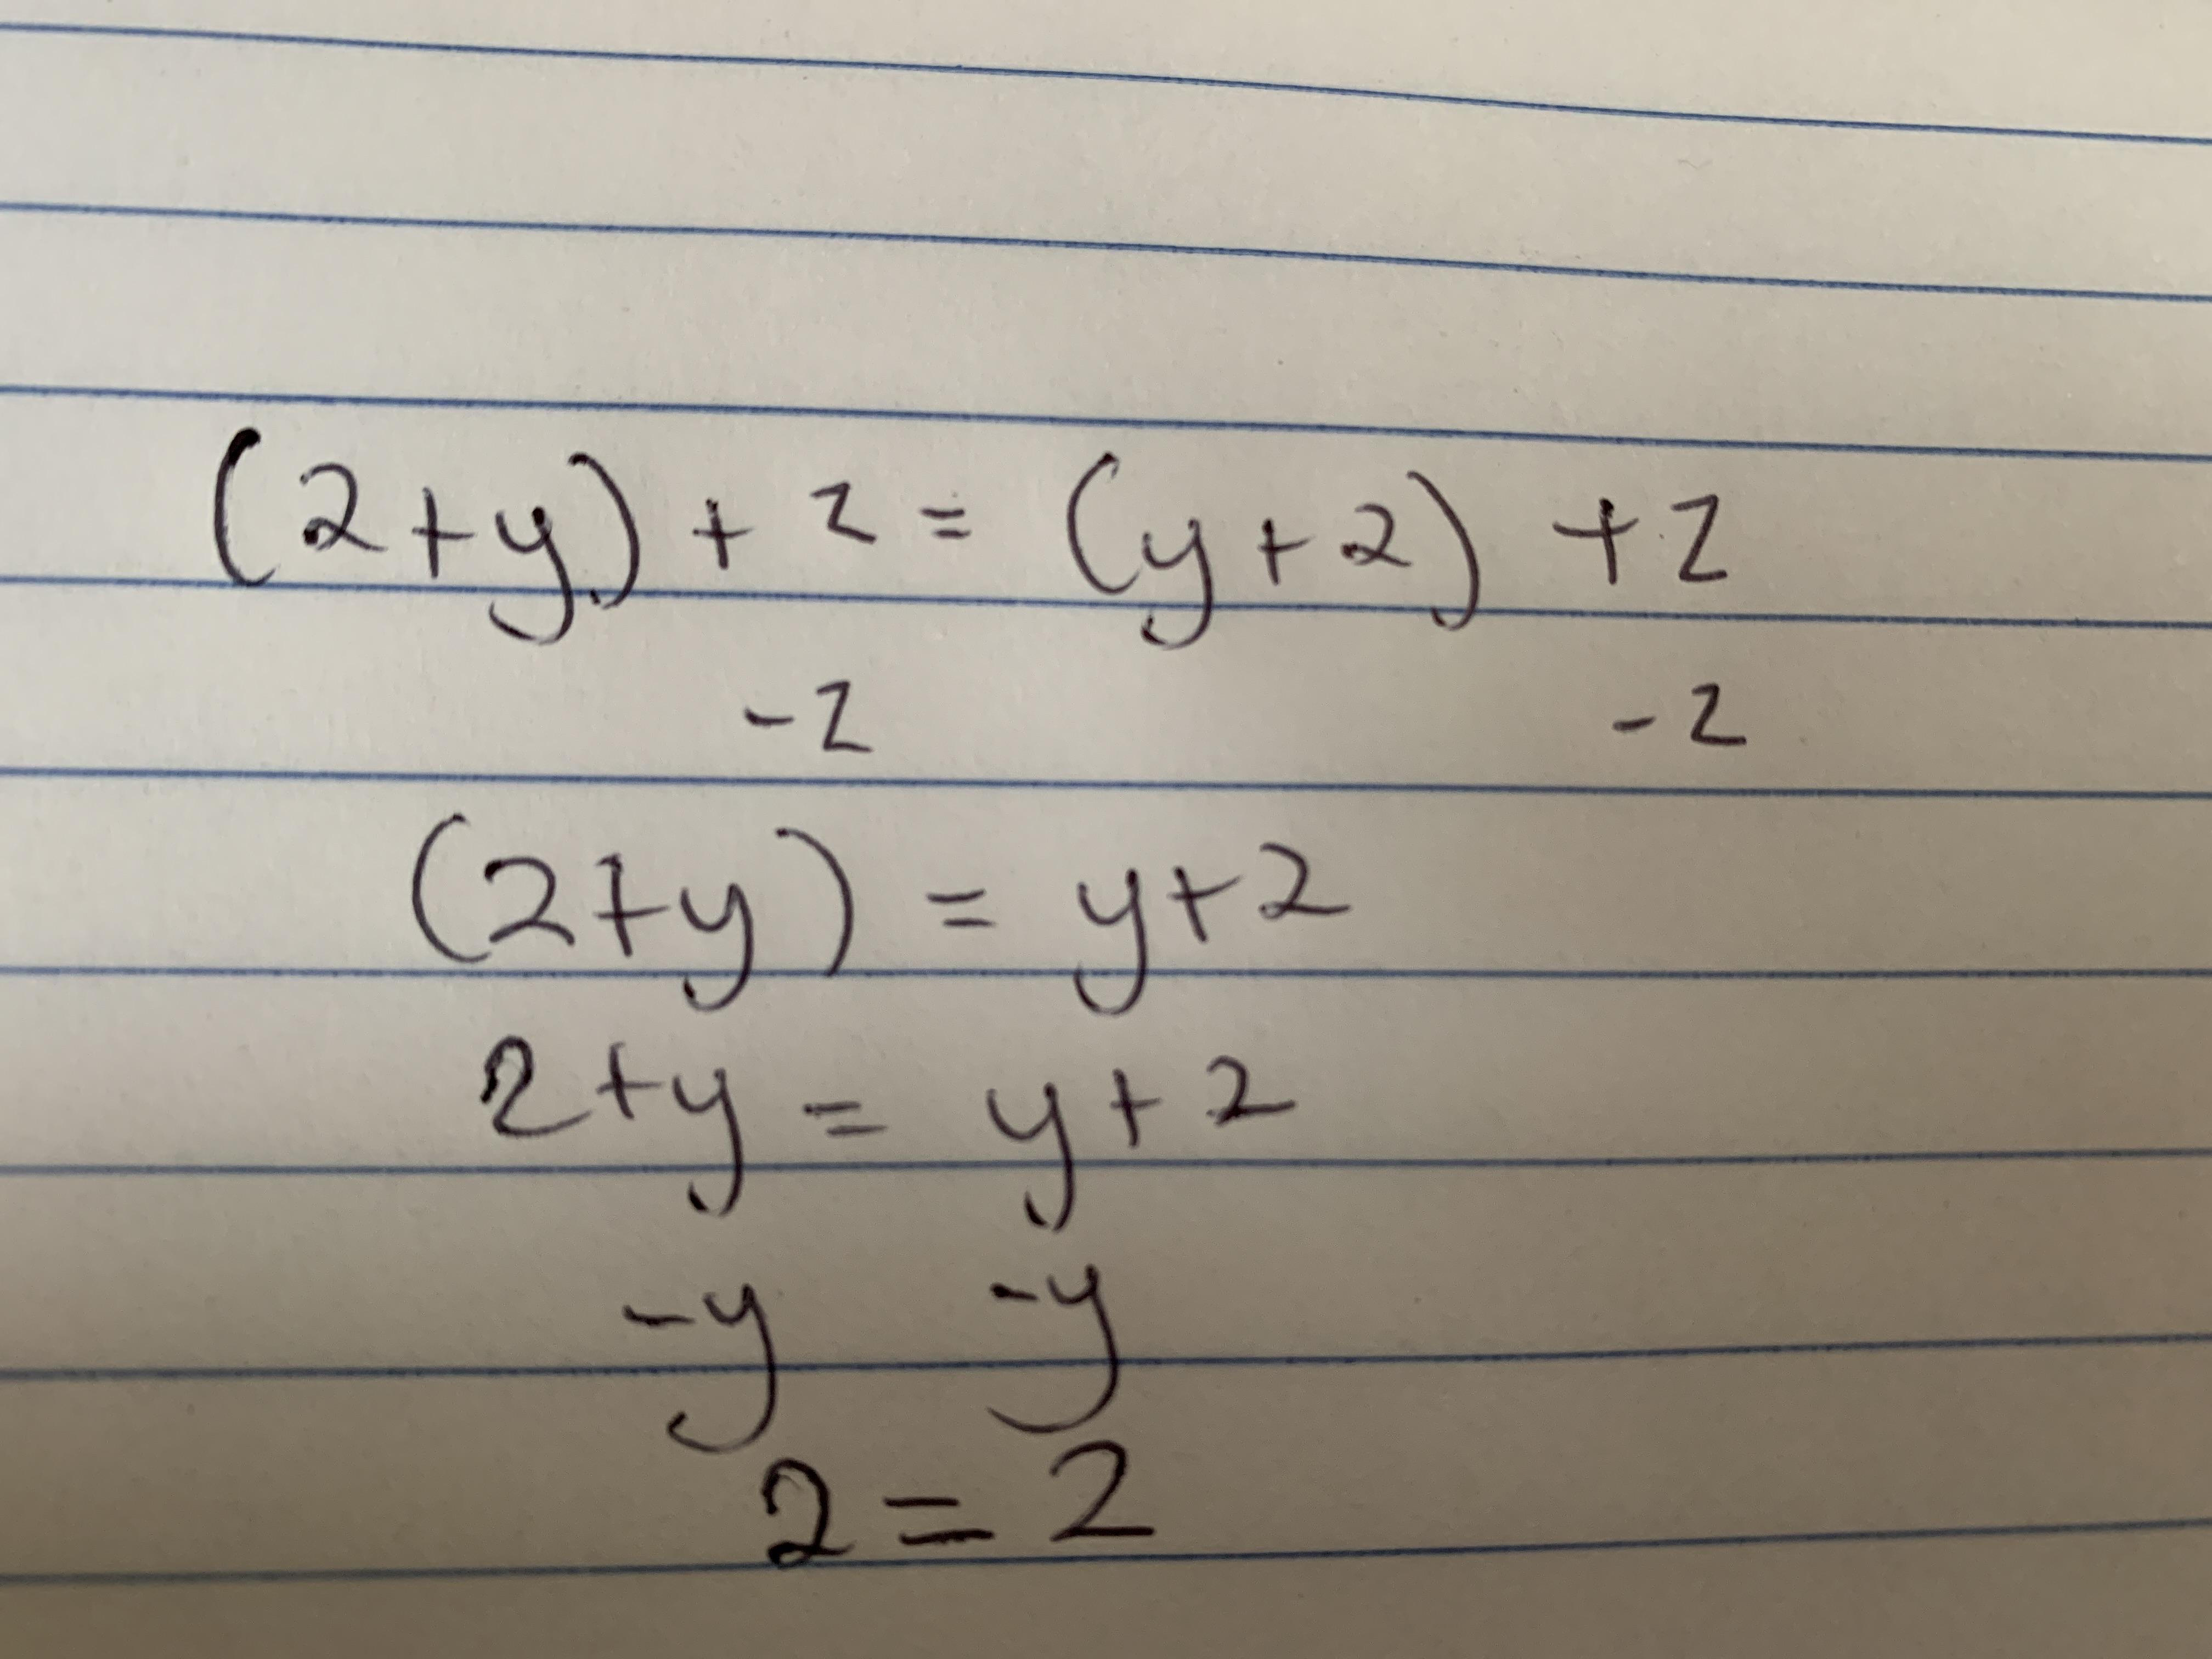 (2+y) + z = (y+2) + z
-z -z
(2+y) = y+2
2+y = y+2
-y -y
2 = 2